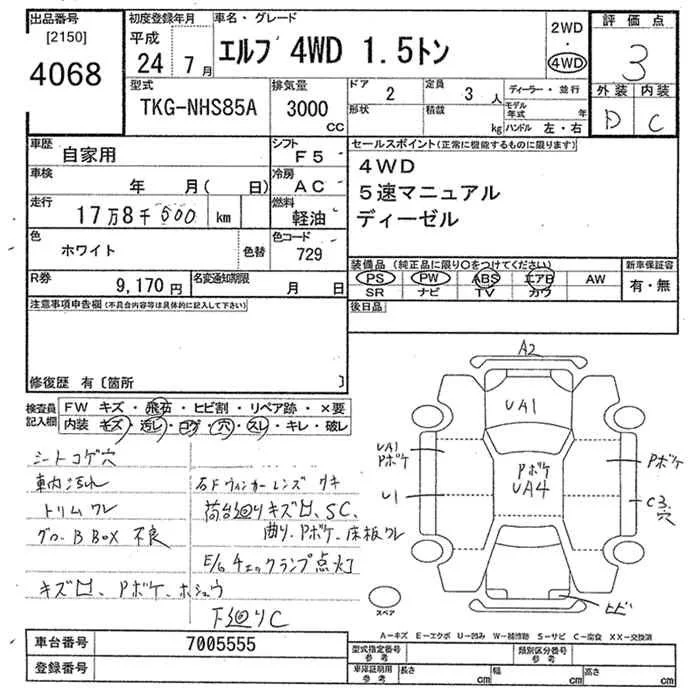 出品番号 初度登録年月 車名・グレード 2WD 評価点
[2150] 平成 エルフ 4WD 1.5トン ・
4068 24年 7月 4WD 3
型式 排気量 ドア 2 定員 3人 ディーラー・並行 外装 内装
TKG-NHS85A 3000cc 形状 積載 kg モデル年式 年 D C
ハンドル 左・右
車歴 自家用 シフト F5 セールスポイント(正常に機能するものに限ります)
車検 年 月( 日) 冷房 AC 4WD
走行 17万8千500km 燃料 軽油 5速マニュアル
ディーゼル
色 ホワイト 色替 色コード 729
装備品 (純正品に限り〇をつけてください) 新車保証書
R券 9,170円 名変通知期限 月 日 PS PW ABS エアB AW 有・無
SR ナビ TV カワ
注意事項申告欄(不具合内容等は具体的に記入して下さい) 後日品
修復歴 有〔箇所 〕
検査員記入欄 FW キズ・飛石・ヒビ割・リペア跡・×要
内装 キズ・汚レ・コゲ・穴・スレ・キレ・破レ
シートコゲ穴
車内汚れ 右Fウィンカーレンズ ワキ
トリムワレ 荷台廻りキズ凹、SC、
グローBBOX 不良 曲り、Pボケ、床板ワレ
E/Gチェックランプ点灯
キズ凹、Pボケ、ホシュウ
下廻りC
A2
UA1
UA1
Pボケ
Pボケ
UA4
Pボケ
U1
C3穴
ヒビ
スペア
A-キズ E-エクボ U-凹み W-補修跡 S-サビ C-腐食 XX-交換済
車台番号 7005555 型式指定番号 参考 類別区分番号 参考
登録番号 車庫証明用 参考 長さ cm 幅 cm 高さ cm